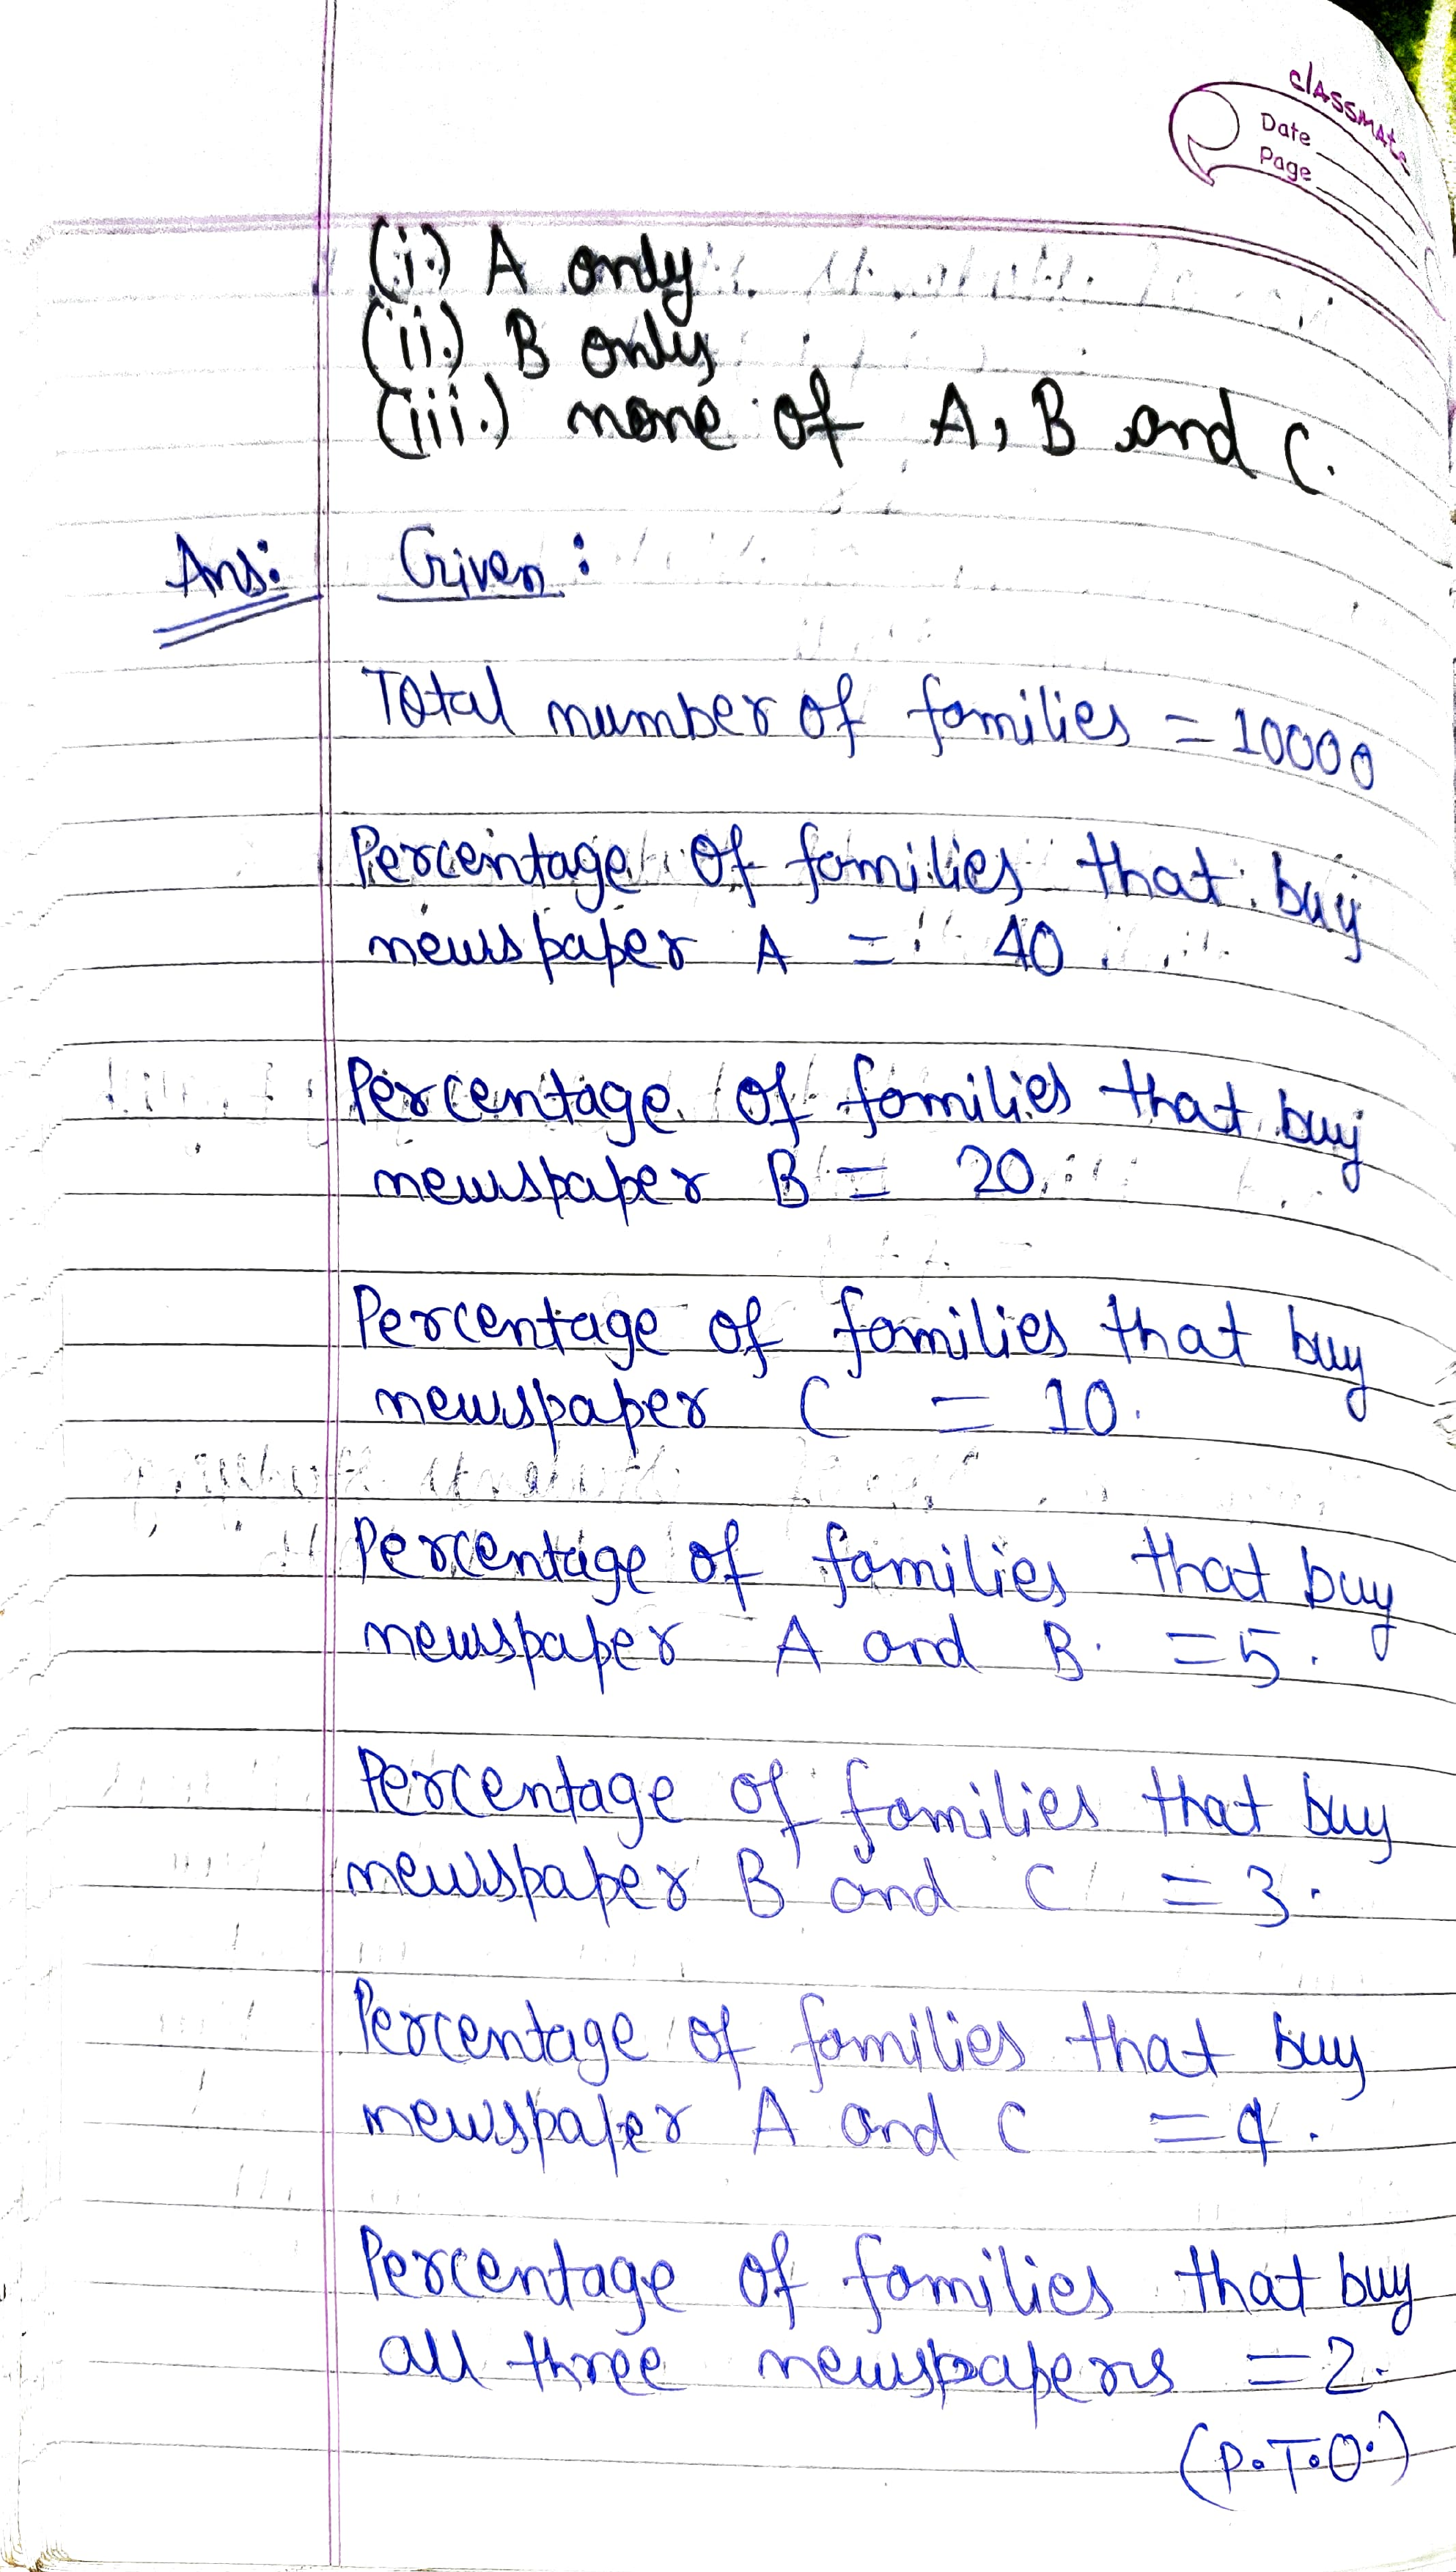 classmate
Date
Page
(i.) A only
(ii.) B only
(iii.) none of A, B and C.
Ans: Given :
Total number of families = 10000
Percentage of families that buy
newspaper A = 40
Percentage of families that buy
newspaper B = 20
Percentage of families that buy
newspaper C = 10.
Percentage of families that buy
newspaper A and B. = 5.
Percentage of families that buy
newspaper B and C = 3.
Percentage of families that buy
newspaper A and C = 4.
Percentage of families that buy
all three newspapers = 2.
(P.T.O.)